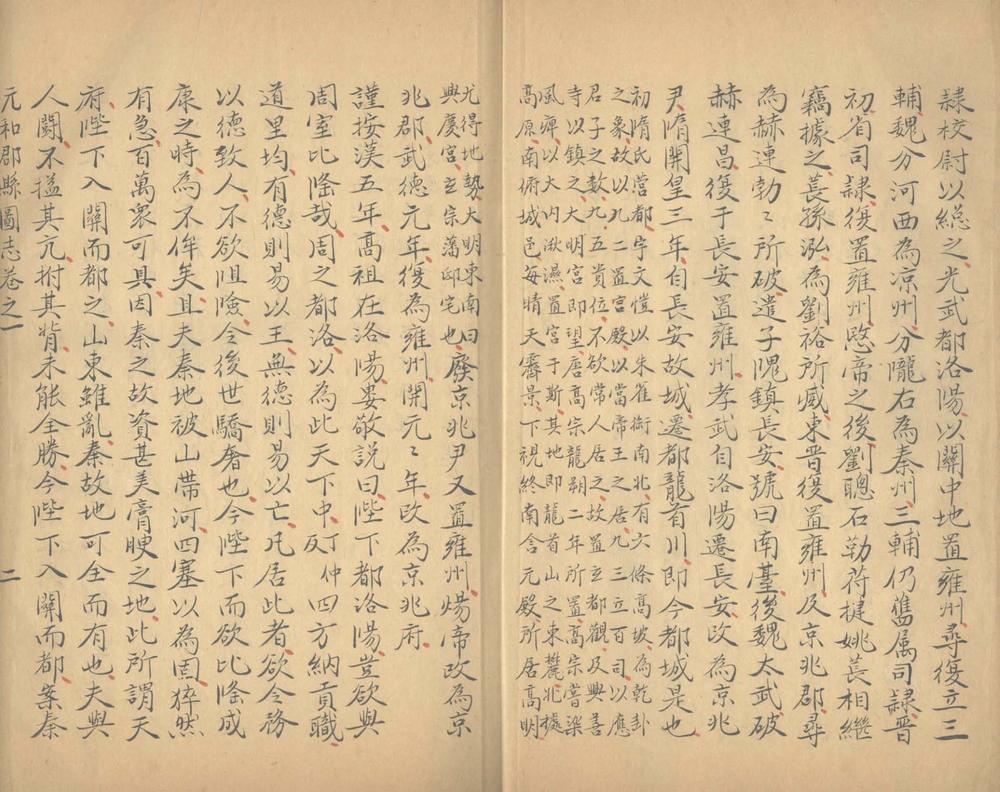 隷校尉以緫之光武都洛陽以關中地置雍州尋復立三
輔魏分河西為凉州分隴右為秦州三輔仍舊属司隷晋
初省司隷復置雍州愍帝之後劉聰石勒苻揵姚萇相繼
竊據之萇孫泓為劉裕所滅東晋復置雍州及京兆郡尋
為赫連勃〻所破遣子隗鎮長安號曰南臺後魏太武破
赫連昌復于長安置雍州孝武自洛陽遷長安改為京兆
尹隋開皇三年自長安故城遷都龍首川即今都城是也
初隋氏營都宇文愷以朱雀街南北有六條高坡為乾卦
之象故以九二置宫殿以當帝王之居九三立百司以應
君子之数九五貴位不欲常人居之故置立都觀及興善
寺以鎮之大明宫即望唐高宗龍朔二年所置高宗嘗染
風痺以大内湫濕置宫于斯其地即龍首山之東麓北據
高原南俯城邑每晴天霽景下視終南含元殿所居高明
尤得地勢大明東南曰
興慶宫立宗藩邸宅也
廢京兆尹又置雍州煬帝改為京
兆郡武德元年復為雍州開元〻年改為京兆府
謹按漢五年高祖在洛陽婁敬説曰陛下都洛陽豈欲與
周室比隆哉周之都洛以為此天下中丁仲反四方納貢職
道里均有德則易以王無德則易以亡凡居此者欲令務
以德致人不欲阻險令後世驕奢也今陛下而欲比隆成
康之時為不侔矣且夫秦地被山帶河四塞以為固猝然
有急百萬衆可具因秦之故資甚美膏腴之地此所謂天
府陛下入關而都之山東雖亂秦故地可全而有也夫與
人鬭不搤其亢拊其背未能全勝今陛下入關而都案秦
元和郡縣圖志卷之一 二